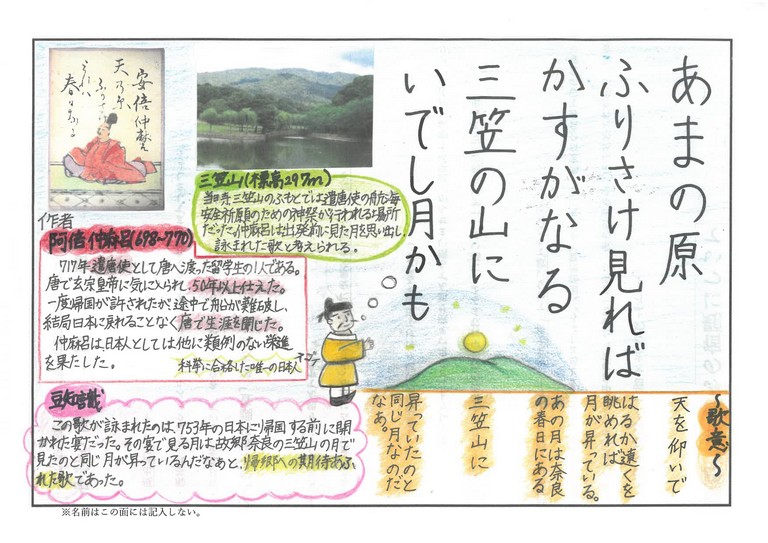 あまの原
ふりさけ見れば
かすがなる
三笠の山に
いでし月かも
～歌意～
天を仰いで
はるか遠くを
眺めれば
月が昇っている。
あの月は奈良
の春日にある
三笠山に
昇っていたのと
同じ月なのだ
なあ。
安倍仲麻呂
天乃原
三笠山(標高297m)
当時三笠山のふもとでは遣唐使の航海
安全祈願のための神祭が行われる場所
だった。仲麻呂は出発前に見た月を思い出し
詠まれた歌と考えられる。
作者
阿倍仲麻呂(698~770)
717年遣唐使として唐へ渡った留学生の1人である。
唐で玄宗皇帝に気に入られ、50年以上仕えた。
一度帰国が許されたが、途中で船が難破し、
結局日本に戻れることなく唐で生涯を閉じた。
仲麻呂は、日本人としては他に類例のない栄進
を果たした。
科挙に合格した唯一の日本人
豆知識
この歌が詠まれたのは、753年の日本に帰国する前に開
かれた宴だった。その宴で見る月は故郷奈良の三笠山の月で
見たのと同じ月が昇っているんだなあと、帰郷への期待あふ
れた歌であった。
※名前はこの面には記入しない。